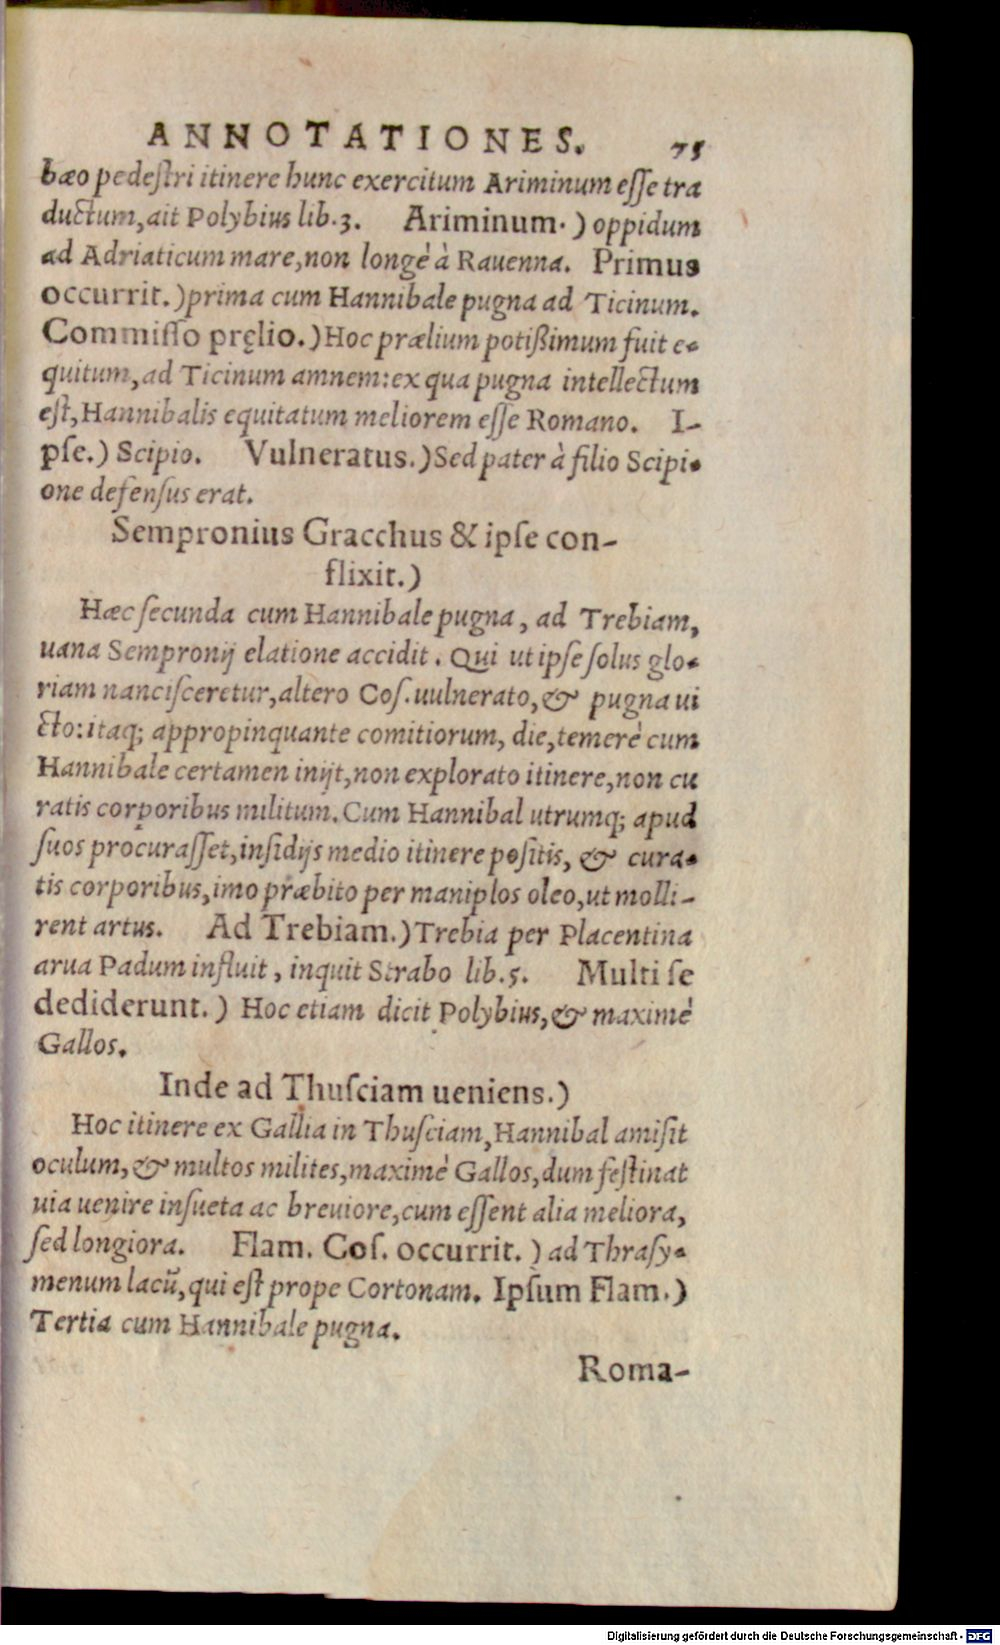 ANNOTATIONES. 75
bæo pedeſtri itinere hunc exercitum Ariminum eſſe tra
ductum, ait Polybius lib.3. Ariminum.) oppidum
ad Adriaticum mare, non longè à Rauenna. Primus
occurrit.) prima cum Hannibale pugna ad Ticinum.
Commiſſo pręlio.) Hoc prælium potißimum fuit e-
quitum, ad Ticinum amnem: ex qua pugna intellectum
eſt, Hannibalis equitatum meliorem eſſe Romano. I-
pſe.) Scipio. Vulneratus.) Sed pater à filio Scipi-
one defenſus erat.
Sempronius Gracchus & ipſe con-
flixit.)
Hæc ſecunda cum Hannibale pugna, ad Trebiam,
uana Sempronij elatione accidit. Qui ut ipſe ſolus glo-
riam nanciſceretur, altero Coſ. uulnerato, & pugna ui
cto: itaq; appropinquante comitiorum, die, temerè cum
Hannibale certamen inijt, non explorato itinere, non cu
ratis corporibus militum. Cum Hannibal utrumq; apud
ſuos procuraſſet, inſidijs medio itinere poſitis, & cura-
tis corporibus, imo præbito per maniplos oleo, ut molli-
rent artus. Ad Trebiam.) Trebia per Placentina
arua Padum influit, inquit Strabo lib.5. Multi ſe
dediderunt.) Hoc etiam dicit Polybius, & maximè
Gallos.
Inde ad Thuſciam ueniens.)
Hoc itinere ex Gallia in Thuſciam, Hannibal amiſit
oculum, & multos milites, maximè Gallos, dum feſtinat
uia uenire inſueta ac breuiore, cum eſſent alia meliora,
ſed longiora. Flam. Coſ. occurrit.) ad Thraſy-
menum lacū, qui eſt prope Cortonam. Ipſum Flam.)
Tertia cum Hannibale pugna.
Roma-
Digitalisierung gefördert durch die Deutsche Forschungsgemeinschaft - DFG